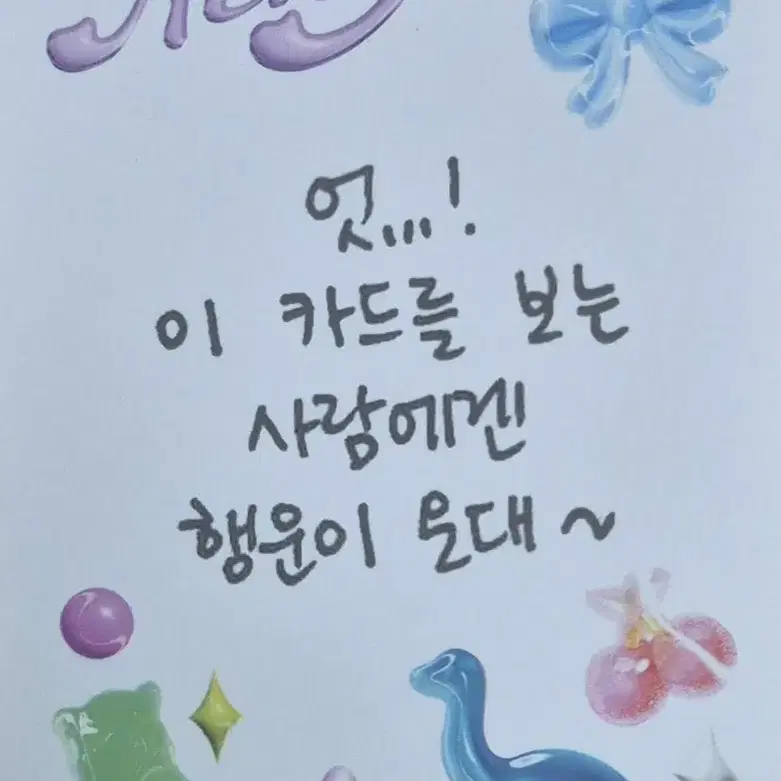 엇,,,!
이 카드를 보는
사람에겐
행운이 온대~